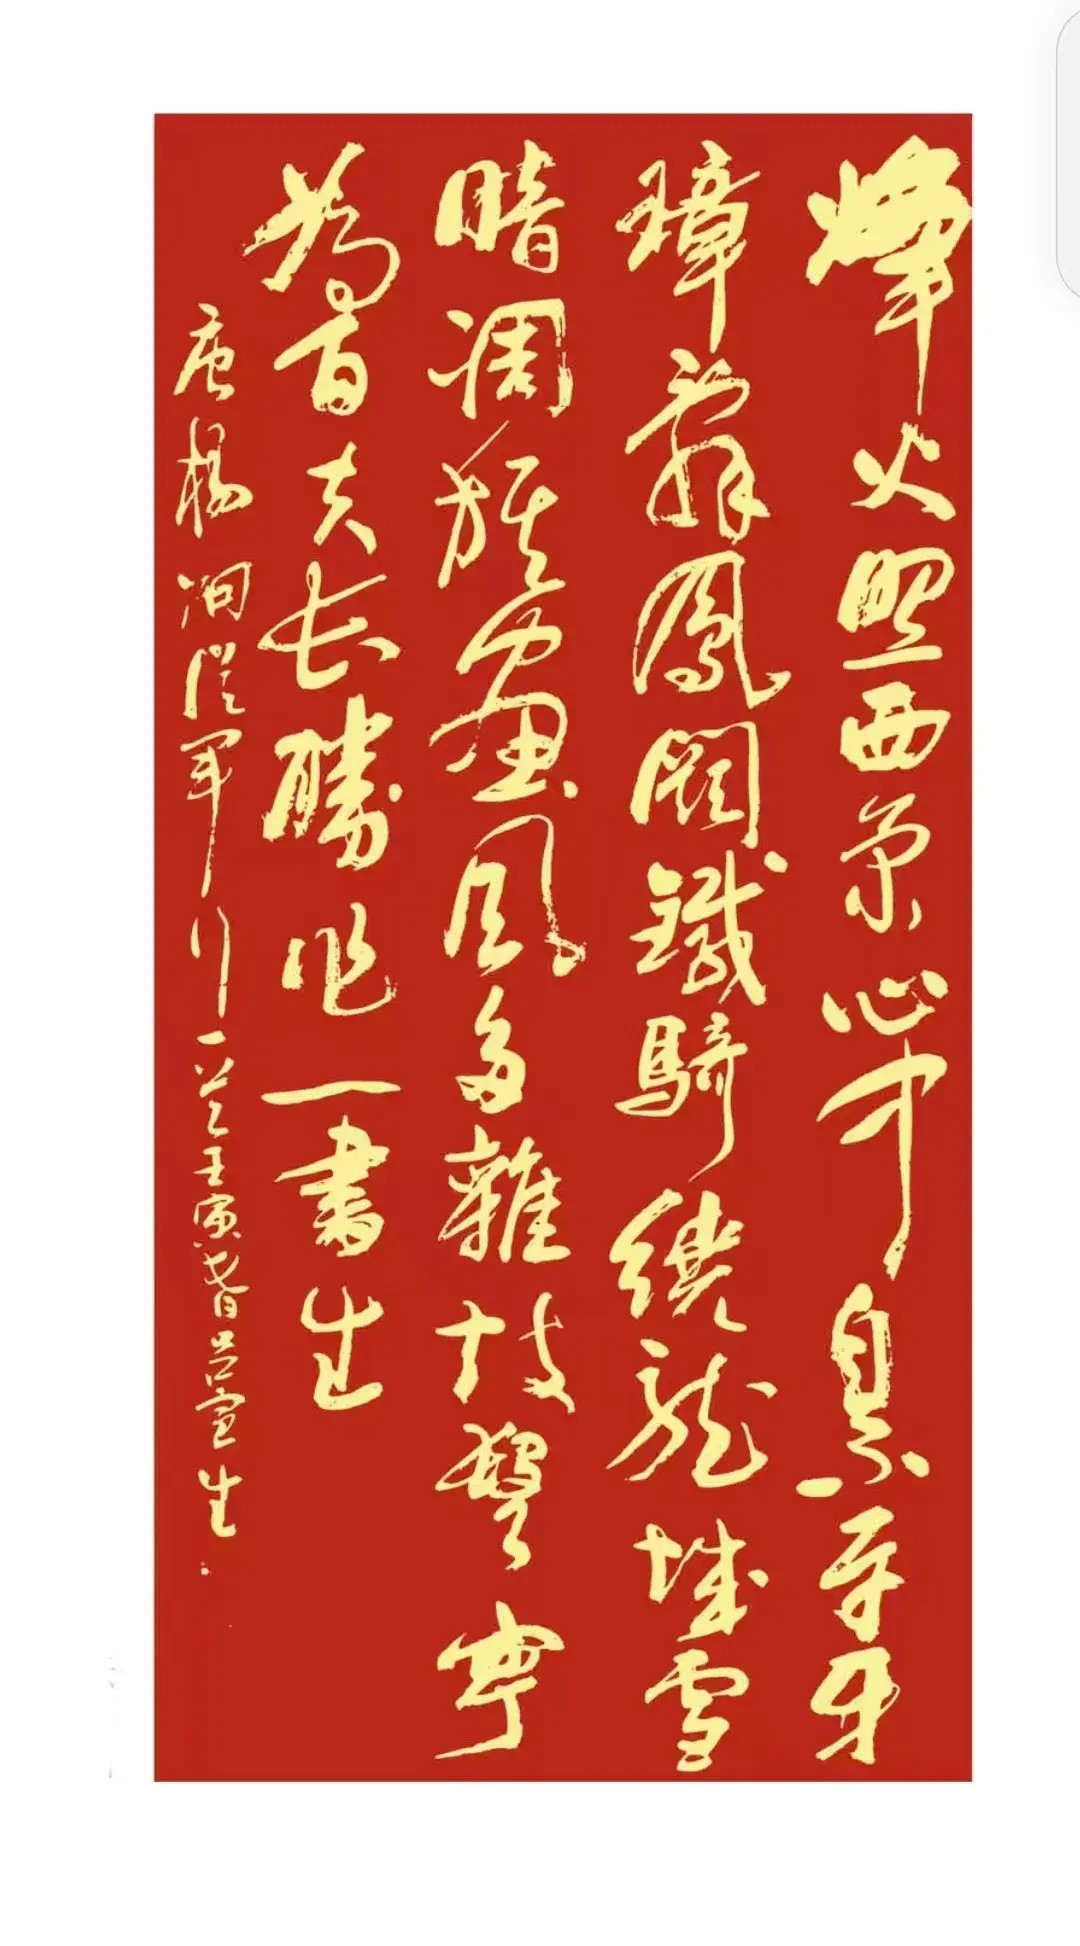 烽火照西京心中自不平牙
璋辭鳳闕鐵騎繞龍城雪
暗凋旗畫風多雜鼓聲寧
為百夫長勝作一書生
唐楊炯從軍行一首壬寅春吕宣生